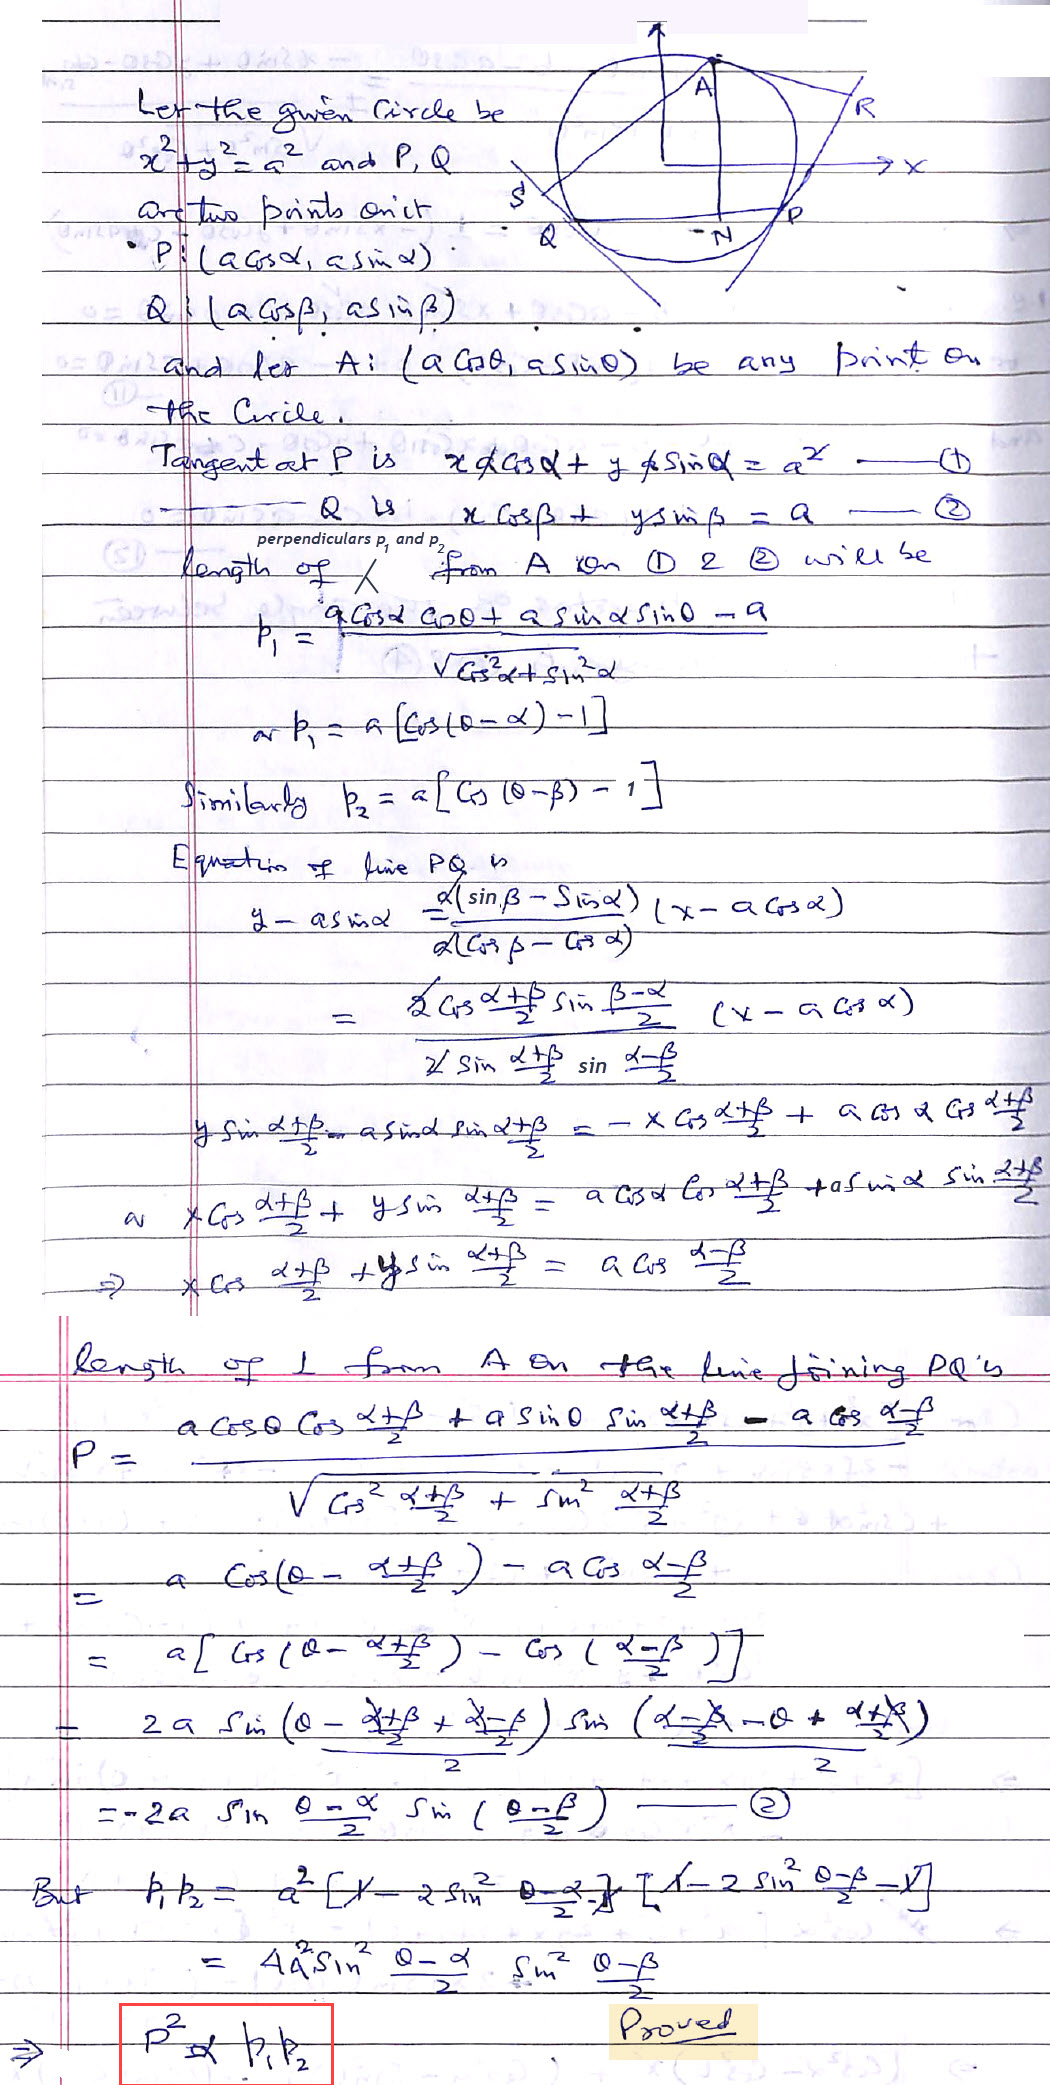 Let the given Circle be
x² + y² = a² and P, Q
are two points on it
P : (a cos α, a sin α)
Q : (a cos β, a sin β)
and let A : (a cos θ, a sin θ) be any point on
the Circle.
A
R
X
S
Q
N
P
Tangent at P is x a cos α + y a sin α = a² —— ①
—— Q is x cos β + y sin β = a —— ②
perpendiculars p₁ and p₂
length of from A on ① & ② will be
p₁ = (a cos α cos θ + a sin α sin θ - a) / √(cos² α + sin² α)
or p₁ = a [cos (θ - α) - 1]
Similarly p₂ = a [cos (θ - β) - 1]
Equation of line PQ is
y - a sin α = a (sin β - sin α) / a (cos β - cos α) (x - a cos α)
= (2 cos (α+β)/2 sin (β-α)/2) / (2 sin (α+β)/2 sin (α-β)/2) (x - a cos α)
y sin (α+β)/2 - a sin α sin (α+β)/2 = - x cos (α+β)/2 + a cos α cos (α+β)/2
or x cos (α+β)/2 + y sin (α+β)/2 = a cos α cos (α+β)/2 + a sin α sin (α+β)/2
⇒ x cos (α+β)/2 + y sin (α+β)/2 = a cos (α-β)/2
length of ⊥ from A on the line joining PQ is
P = (a cos θ cos (α+β)/2 + a sin θ sin (α+β)/2 - a cos (α-β)/2) / √(cos² (α+β)/2 + sin² (α+β)/2)
= a cos (θ - (α+β)/2) - a cos (α-β)/2
= a [cos (θ - (α+β)/2) - cos ((α-β)/2)]
= 2a sin ((θ - (α+β)/2 + (α-β)/2)/2) sin (((α-β)/2 - θ + (α+β)/2)/2)
= - 2a sin (θ-α)/2 sin ((θ-β)/2) —— ②
But p₁ p₂ = a² [1 - 2 sin² (θ-α)/2 - 1] [1 - 2 sin² (θ-β)/2 - 1]
= 4a² sin² (θ-α)/2 sin² (θ-β)/2
⇒ P² ∝ p₁p₂ Proved